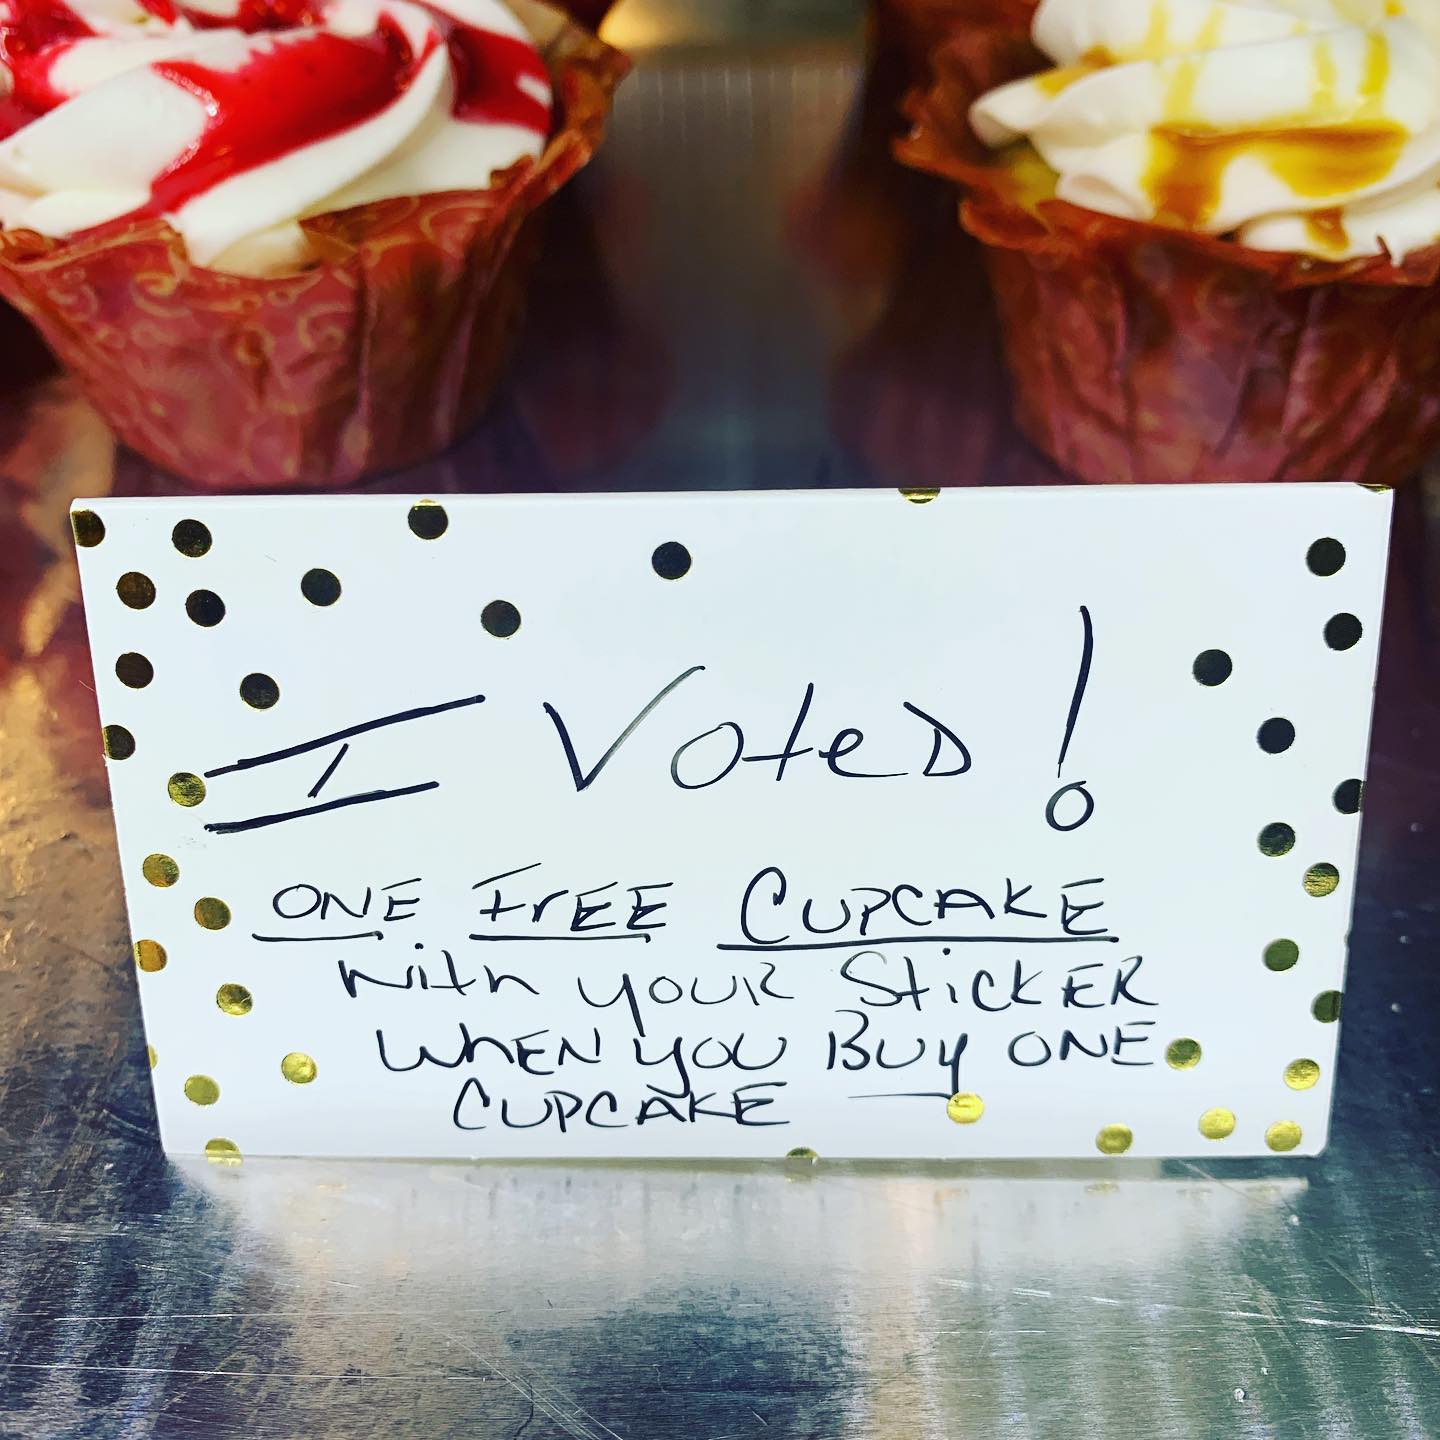 I Voted!
ONE FrEE CUPCAKE
with your Sticker
WhEN you Buy ONE
CUPCAKE